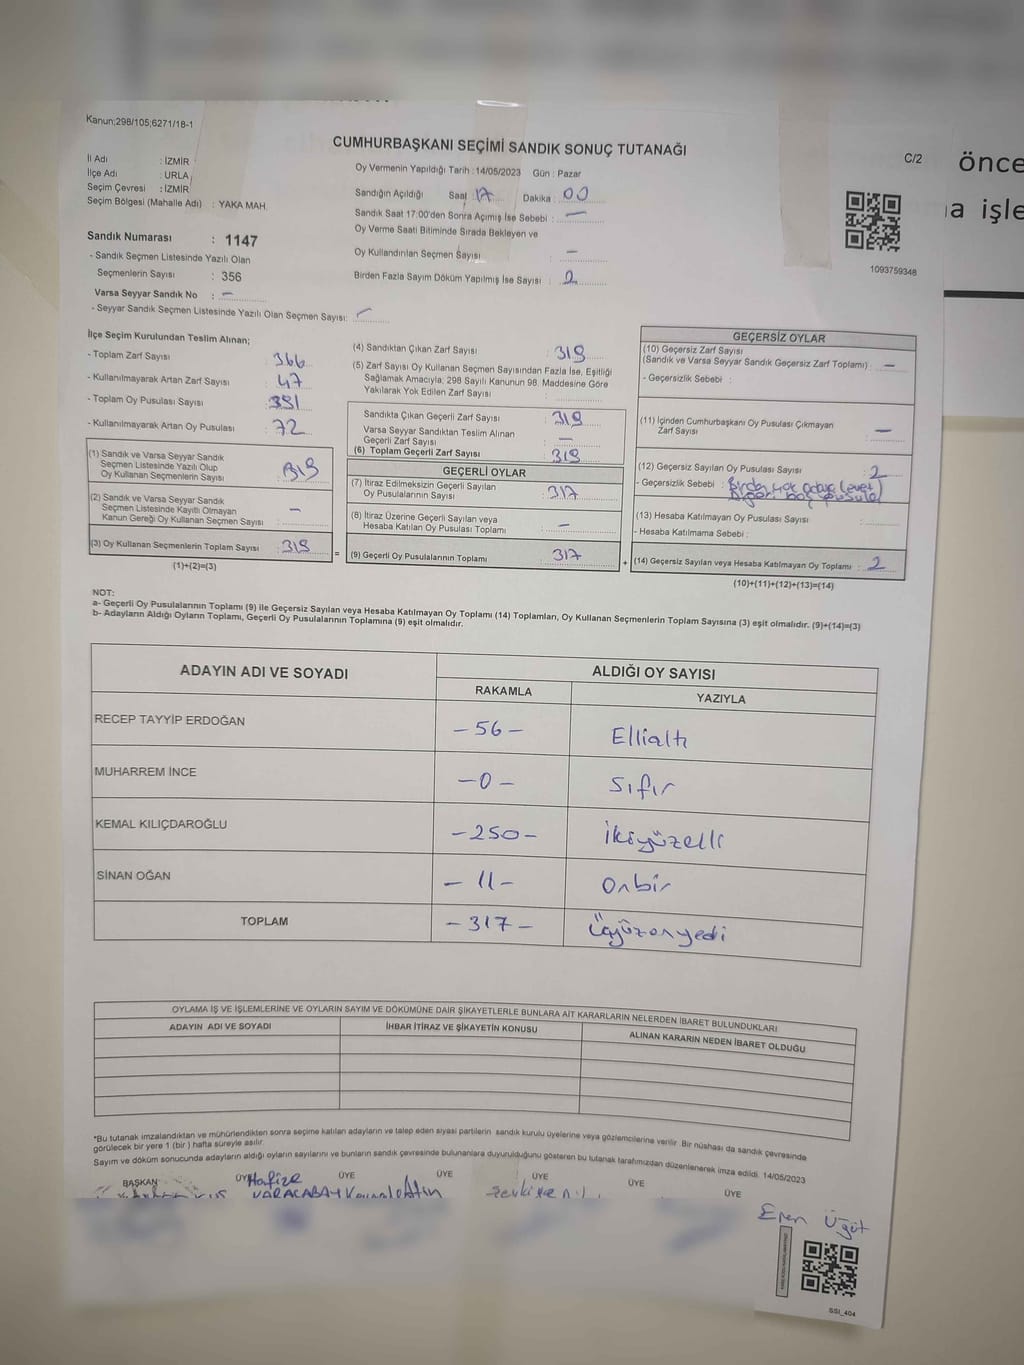 Kanun;298/105;6271/18-1
CUMHURBAŞKANI SEÇİMİ SANDIK SONUÇ TUTANAĞI
C/2
önce
a işle
İl Adı : İZMİR
İlçe Adı : URLA
Seçim Çevresi : İZMİR
Seçim Bölgesi (Mahalle Adı) : YAKA MAH.
Oy Vermenin Yapıldığı Tarih : 14/05/2023 Gün : Pazar
Sandığın Açıldığı Saat 17 Dakika : 00
Sandık Saat 17:00'den Sonra Açımış İse Sebebi : —
Oy Verme Saati Bitiminde Sırada Bekleyen ve
Oy Kullandırılan Seçmen Sayısı : —
Birden Fazla Sayım Döküm Yapılmış İse Sayısı : 2
1093759348
Sandık Numarası : 1147
- Sandık Seçmen Listesinde Yazılı Olan
Seçmenlerin Sayısı : 356
Varsa Seyyar Sandık No : —
- Seyyar Sandık Seçmen Listesinde Yazılı Olan Seçmen Sayısı: —
İlçe Seçim Kurulundan Teslim Alınan;
- Toplam Zarf Sayısı : 366
- Kullanılmayarak Artan Zarf Sayısı : 47
- Toplam Oy Pusulası Sayısı : 391
- Kullanılmayarak Artan Oy Pusulası : 72
(1) Sandık ve Varsa Seyyar Sandık
Seçmen Listesinde Yazılı Olup
Oy Kullanan Seçmenlerin Sayısı : 319
(2) Sandık ve Varsa Seyyar Sandık
Seçmen Listesinde Kayıtlı Olmayan
Kanun Gereği Oy Kullanan Seçmen Sayısı : —
(3) Oy Kullanan Seçmenlerin Toplam Sayısı : 319
(1)+(2)=(3)
(4) Sandıktan Çıkan Zarf Sayısı : 319
(5) Zarf Sayısı Oy Kullanan Seçmen Sayısından Fazla İse, Eşitliği
Sağlamak Amacıyla; 298 Sayılı Kanunun 98. Maddesine Göre
Yakılarak Yok Edilen Zarf Sayısı :
Sandıkta Çıkan Geçerli Zarf Sayısı : 319
Varsa Seyyar Sandıktan Teslim Alınan
Geçerli Zarf Sayısı : —
(6) Toplam Geçerli Zarf Sayısı : 319
GEÇERLİ OYLAR
(7) İtiraz Edilmeksizin Geçerli Sayılan
Oy Pusulalarının Sayısı : 317
(8) İtiraz Üzerine Geçerli Sayılan veya
Hesaba Katılan Oy Pusulası Toplamı : —
= (9) Geçerli Oy Pusulalarının Toplamı : 317
GEÇERSİZ OYLAR
(10) Geçersiz Zarf Sayısı
(Sandık ve Varsa Seyyar Sandık Geçersiz Zarf Toplamı) : —
- Geçersizlik Sebebi :
(11) İçinden Cumhurbaşkanı Oy Pusulası Çıkmayan
Zarf Sayısı : —
(12) Geçersiz Sayılan Oy Pusulası Sayısı : 2
- Geçersizlik Sebebi : Birden çok adaya (evet)
Diğeri boş pusula
(13) Hesaba Katılmayan Oy Pusulası Sayısı :
- Hesaba Katılmama Sebebi :
+ (14) Geçersiz Sayılan veya Hesaba Katılmayan Oy Toplamı : 2
(10)+(11)+(12)+(13)=(14)
NOT:
a- Geçerli Oy Pusulalarının Toplamı (9) ile Geçersiz Sayılan veya Hesaba Katılmayan Oy Toplamı (14) Toplamları, Oy Kullanan Seçmenlerin Toplam Sayısına (3) eşit olmalıdır. (9)+(14)=(3)
b- Adayların Aldığı Oyların Toplamı, Geçerli Oy Pusulalarının Toplamına (9) eşit olmalıdır.
ADAYIN ADI VE SOYADI ALDIĞI OY SAYISI
RAKAMLA YAZIYLA
RECEP TAYYİP ERDOĞAN -56- Ellialtı
MUHARREM İNCE -0- Sıfır
KEMAL KILIÇDAROĞLU -250- İkiyüzelli
SİNAN OĞAN -11- Onbir
TOPLAM -317- Üçyüzonyedi
OYLAMA İŞ VE İŞLEMLERİNE VE OYLARIN SAYIM VE DÖKÜMÜNE DAİR ŞİKAYETLERLE BUNLARA AİT KARARLARIN NELERDEN İBARET BULUNDUKLARI
ADAYIN ADI VE SOYADI İHBAR İTİRAZ VE ŞİKAYETİN KONUSU ALINAN KARARIN NEDEN İBARET OLDUĞU
*Bu tutanak imzalandıktan ve mühürlendikten sonra seçime katılan adayların ve talep eden siyasi partilerin sandık kurulu üyelerine veya gözlemcilerine verilir. Bir nüshası da sandık çevresinde
görülecek bir yere 1 (bir) hafta süreyle asılır.
Sayım ve döküm sonucunda adayların aldığı oyların sayılarını ve bunların sandık çevresinde bulunanlara duyurulduğunu gösteren bu tutanak tarafımızdan düzenlenerek imza edildi. 14/05/2023
BAŞKAN ÜYE ÜYE ÜYE ÜYE ÜYE ÜYE
Hafize
KARACABAY
Eren Üğüt
SSI_404